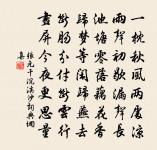 一枕秋風兩處涼
雨聲初歇漏聲長
池塘零落藕花香
歸夢等閑歸燕去
斷腸分付斷雲行
畫屏今夜更思量
張元干浣溪沙詞典
集